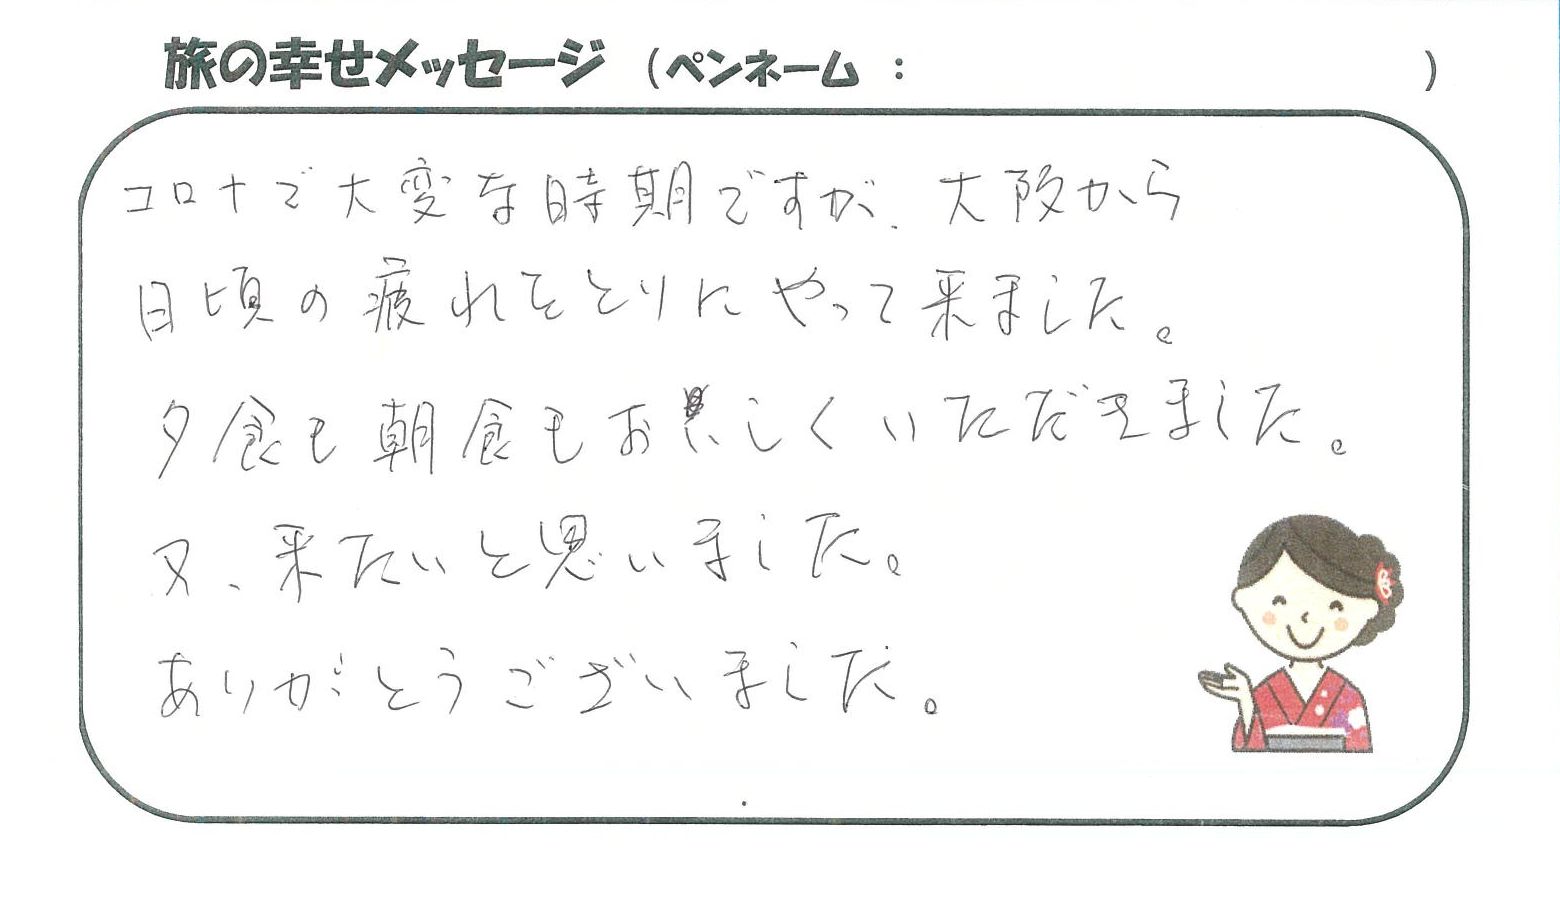 旅の幸せメッセージ (ペンネーム : )
コロナで大変な時期ですが、大阪から
日頃の疲れをとりにやって来ました。
夕食も朝食もおいしくいただきました。
又、来たいと思いました。
ありがとうございました。